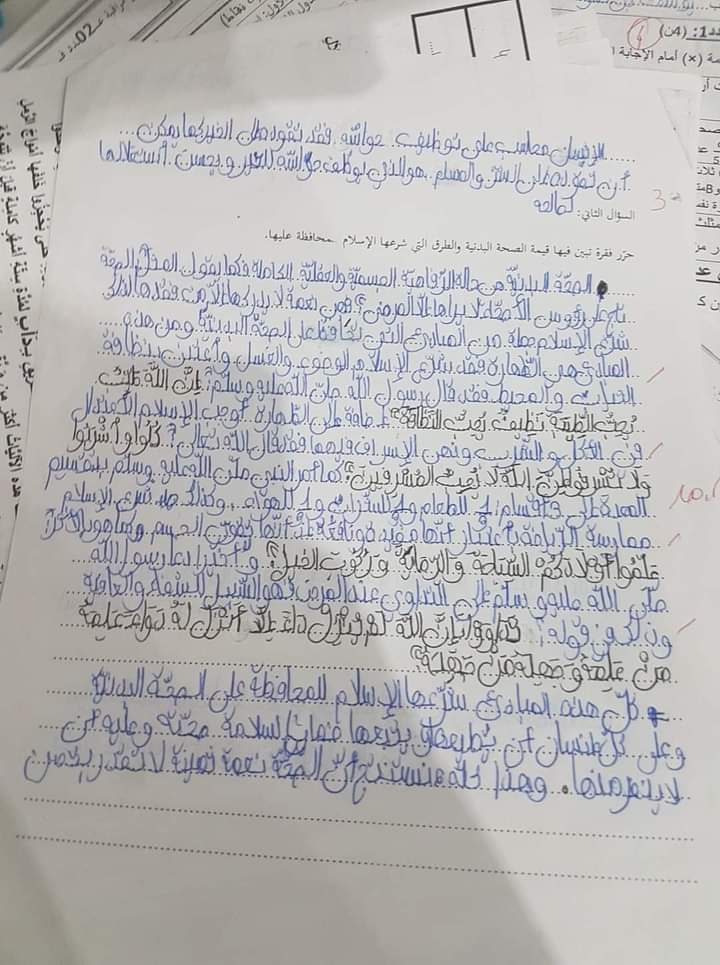 عدد1: (4ن)
الإنسان محاسب على توظيف حواسّه. فقد تقوده إلى الخير كما يمكن...
أن تقوده إلى الشرّ والمسلم هو الذي يوظف حواسّه للخير و يحسن استغلالها
لصالحه
السؤال الثاني:
حرّر فقرة تبين فيها قيمة الصحة البدنية والطرق التي شرعها الإسلام محافظة عليها.
الصحّة البدنيّة هي حالة الرّفاهيّة الجسميّة والعقليّة الكاملة فكما يقول المثل الصحّة
تاج على رؤوس الأصحّاء لا يراها إلّا المرضى؟ فهي نعمة لا يدركها إلّا من فقدها لذلك
شرّع الإسلام جملة من المبادئ التي تحافظ على الصحّة البدنيّة ومن هذه
المبادئ هي الطّهارة فقد شرّع الإسلام الوضوء والغسل وأعتنى بنظافة
الثياب والمحيط فقد قال رسول الله صلى الله عليه وسلم: إنّ اللّه طيّب
يُحِبُّ الطَّيِّبَ نَظِيفٌ يُحِبُّ النَّظَافَةَ؟ إضافة إلى الطهارة أوجب الإسلام الاعتدال
في الأكل و الشرب ونهى الإسراف فيهما فقد قال الله تعالى؟ كُلُوا وَأشْرَبُوا
وَلَا تُسْرِفُوا إِنَّ اللَّهَ لَا يُحِبُّ المُسْرِفِينَ؟ كما أمر النبي صلّى الله عليه وسلم بتقسيم
المعدة إلى 3 أقسام: للطعام و للشراب و للهواء. وكذلك شرع الإسلام
ممارسة الرّياضة بأعتبار أنّها مفيدة ونافعة أنّها تقوّي الجسم وكما هو
عَلِّمُوا أوْلَادَكُمْ السِّبَاحَةَ وَالرِّمَايَةَ وَرُكُوبَ الخَيْلِ؟ و أخيرا دعا رسول الله
صلّى الله عليه و سلّم إلى التداوي عند المرض فهو السّبيل للشفاء والعافية
وذلك في قوله: تداووا فإنّ اللّه لم ينزل داء إلّا أنزل له دواء علمه
مَنْ عَلِمَهُ وَجَهِلَهُ مَنْ جَهِلَهُ؟
كلّ هذه المبادئ شرّعها الإسلام للمحافظة على الصحّة البدنيّة
وعلى كلّ إنسان أن يطبعها ضمانا لسلامة صحّته وعليه أن
لا ينفر منها. وهذا كلّه نستنتج أنّ الصحّة نعمة ثمينة لا تقدّر بثمن